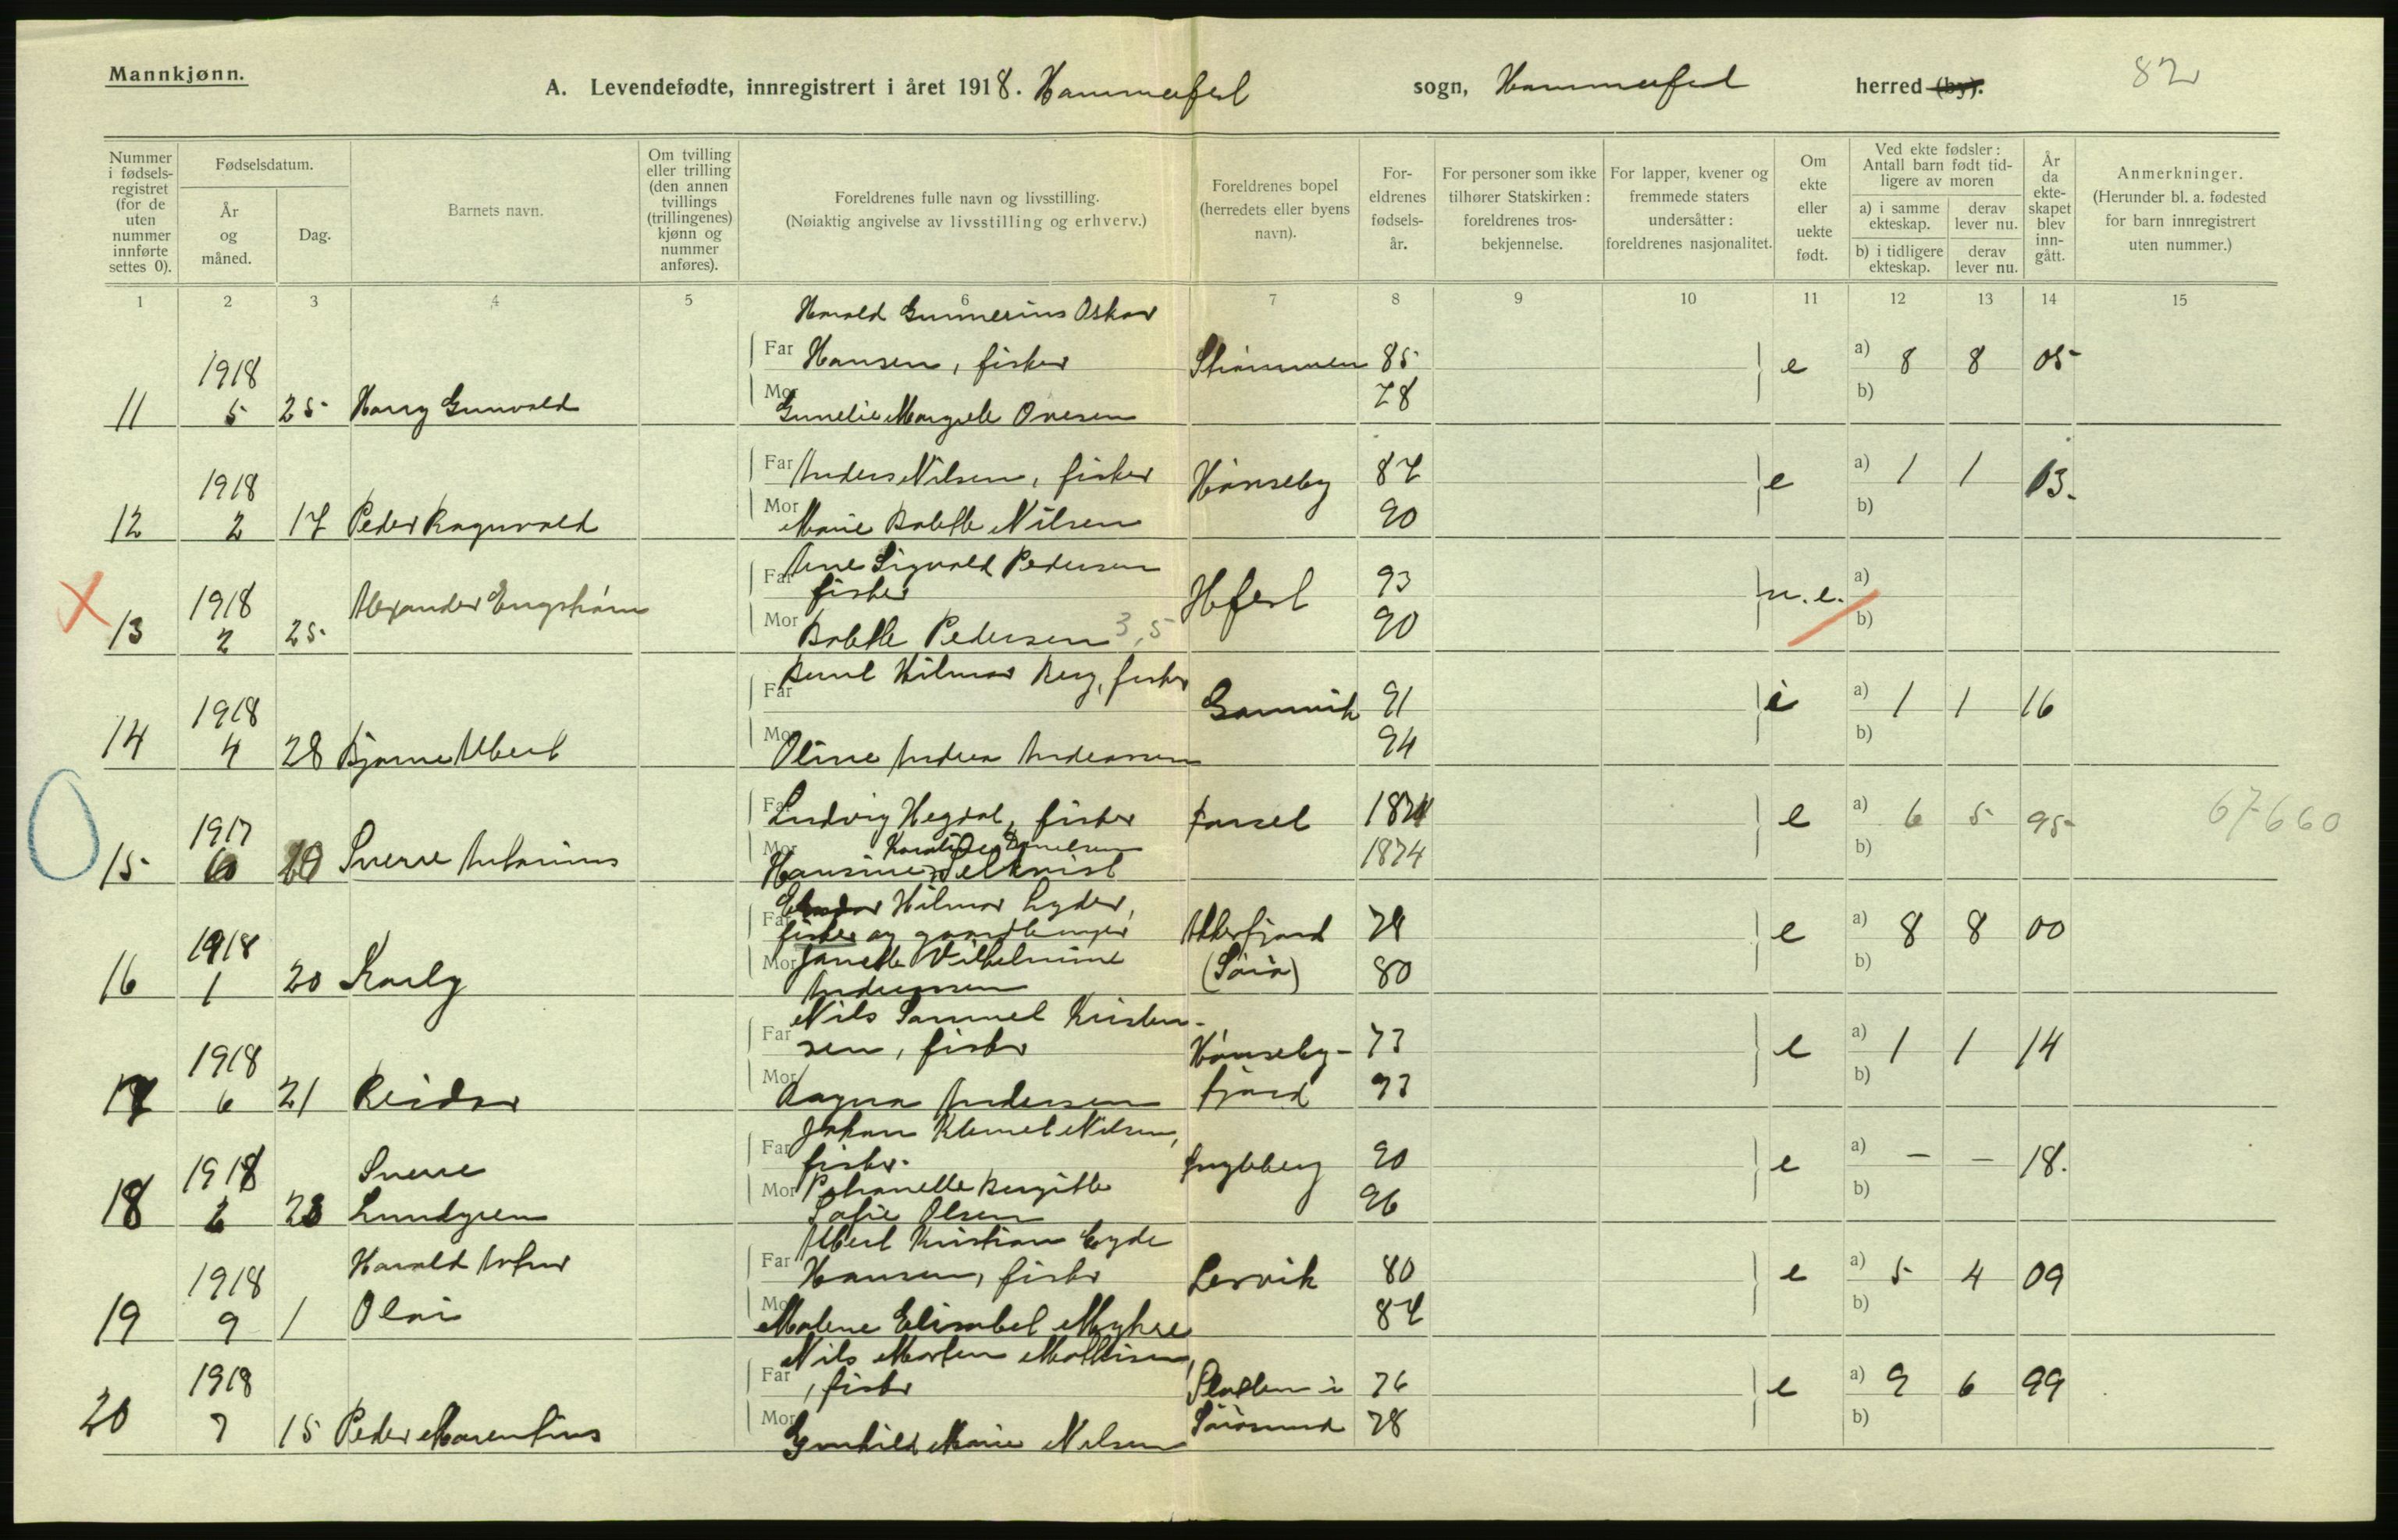 Mannkjønn.
A. Levendefødte, innregistrert i året 1918. Hammerfest sogn, Hammerfest herred (by).
82
Nummer i fødselsregistret (for de uten nummer innførte settes 0).
Fødselsdatum.
År og måned.
Dag.
Barnets navn.
Om tvilling eller trilling (den annen tvillings (trillingenes) kjønn og nummer anføres).
Foreldrenes fulle navn og livsstilling.
(Nøiaktig angivelse av livsstilling og erhverv.)
Foreldrenes bopel (herredets eller byens navn).
Foreldrenes fødselsår.
For personer som ikke tilhører Statskirken: foreldrenes trosbekjennelse.
For lapper, kvener og fremmede staters undersåtter: foreldrenes nasjonalitet.
Om ekte eller uekte født.
Ved ekte fødsler: Antall barn født tidligere av moren
a) i samme ekteskap.
derav lever nu.
b) i tidligere ekteskap.
derav lever nu.
År da ekteskapet blev inngått.
Anmerkninger.
(Herunder bl. a. fødested for barn innregistrert uten nummer.)
1 2 3 4 5 6 7 8 9 10 11 12 13 14 15
Harald Gunnerius Oskar
Far Hansen, fisker Strømmen 85 e a) 8 8 05
1918
Mor 78 b)
11 5 25 Harry Gunvald Gunelie Margrete Ovesen
Far Anders Nilsen, fisker Hønseby 87 e a) 1 1 13.
1918
Mor b)
12 2 17 Peder Ragnvald Marie Bolette Nilsen 90
Arne Sigvald Pedersen
Far fisker Hfest 93 u.e. a)
1918 Alexander Engstrøm
13 2 25 Mor Bolette Pedersen 3,5 90 b)
Bernt Hilmar Berg, fisker
Far Gamvik 91 e a) 1 1 16
1918
Mor 94 b)
14 4 28 Bjarne Albert Oline Andrea Andreassen
Far Ludvig Hegdal, fisker 1871 e a) 6 5 95 67660
1917
Mor 1874 b)
15 29 Sverre Antonius Hansine
Hilmar Lyder,
Far fisker og gaardbruger Akkerfjord 78 e a) 8 8 00
1918
Mor Janette Vilhelmine (Sørø) 80 b)
16 1 20 Karly Andreassen
Nils Samuel Kristen-
Far sen, fisker Hønseby- 73 e a) 1 1 14
1918
Mor b)
17 6 21 Reidar Ragna Andersen fjord 93
Johan Klemet Nilsen,
Far fisker. 90 e a) – – 18.
1918 Sverre
Mor Petranelle Bergitte 96 b)
18 2 23 Lundgren Sofie Olsen
Albert Kristian Eyde
Far Hansen, fisker Lervik 80 e a) 5 4 09
1918 Harald Arthur
Mor 87 b)
19 9 1 Olai Malene Elisabet Myhre
Nils Morten Mathisen,
Far , fisker i 76 e a) 9 6 99
1918
Mor Sørøsund 78 b)
20 7 15 Peder Marentius Gunhild Marie Nilsen